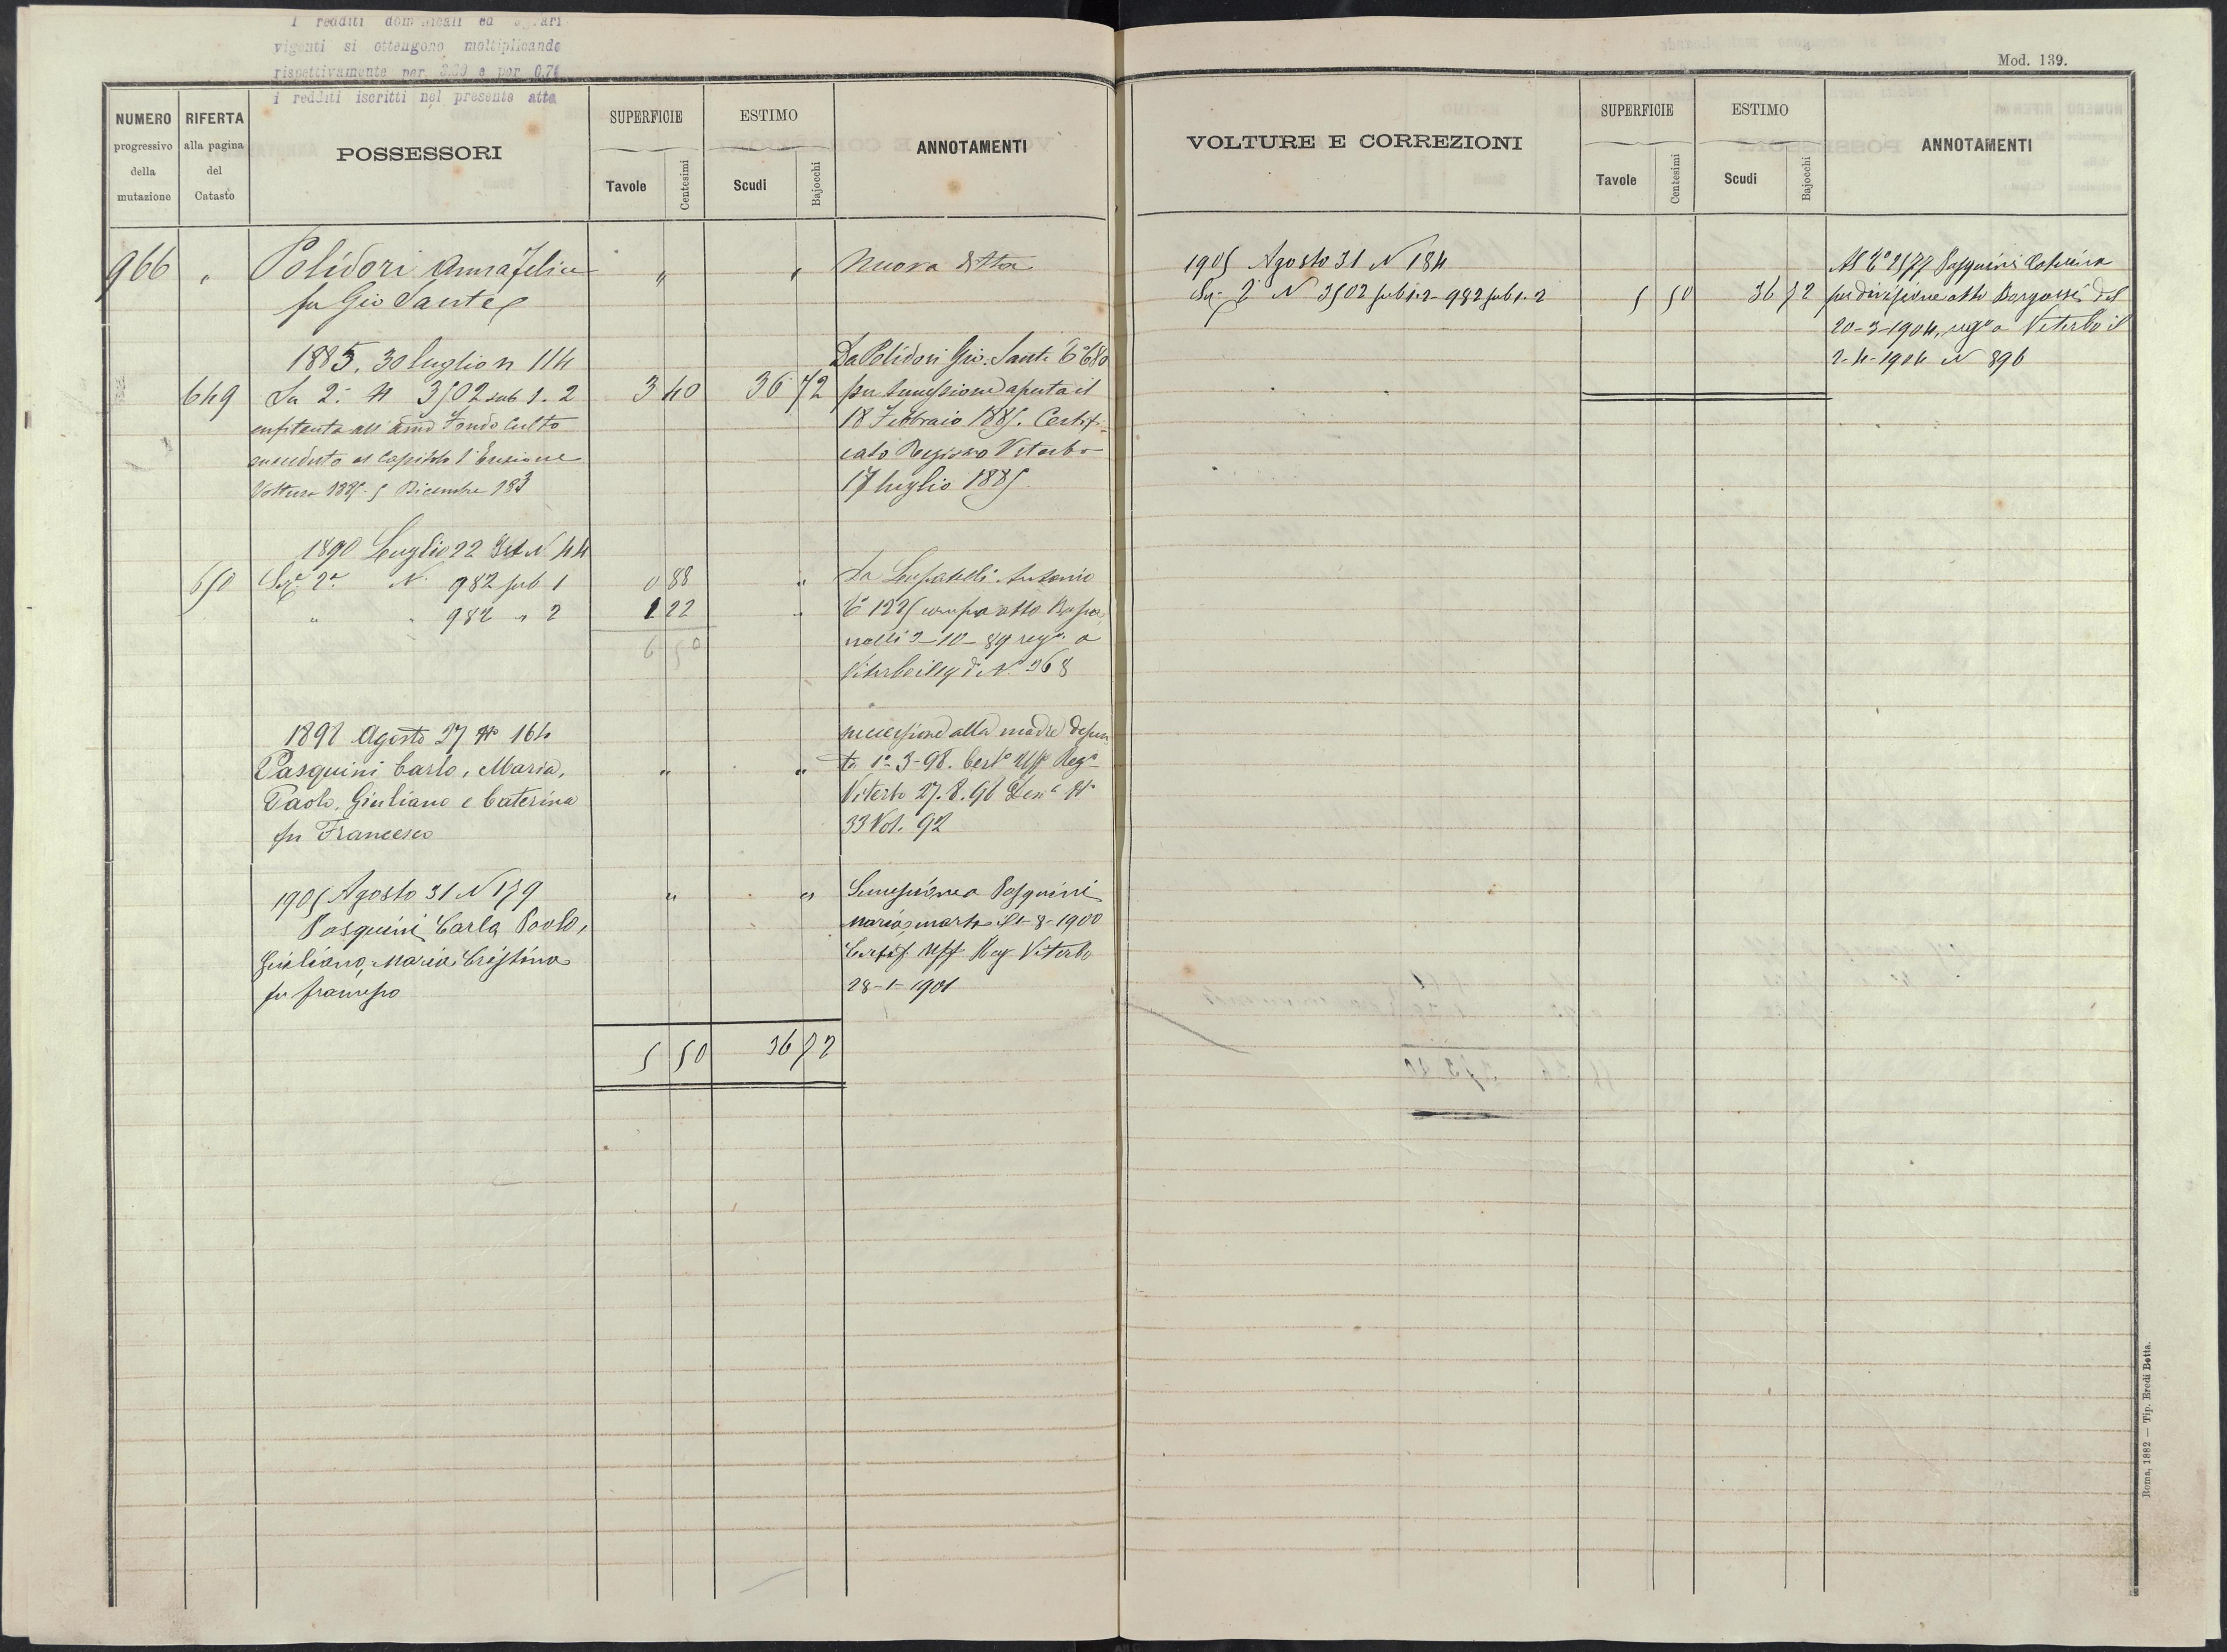 I redditi dominicali ed agrari
vigenti si ottengono moltiplicando
rispettivamente per e per 0.70
i redditi iscritti nel presente atto
NUMERO progressivo della mutazione
RIFERTA alla pagina del Catasto
POSSESSORI
SUPERFICIE
Tavole
Centesimi
ESTIMO
Scudi
Bajocchi
ANNOTAMENTI
966 " Polidori Anna Felice " " Nuova Ditta
fu Gio Sante
1885. 30 luglio n 114
649 Su 2ª N 3502 sub 1. 2 3 40 36 72
enfiteuta all' Amo Fondo Culto
Voltura 1885. 5 Dicembre 183
Da Polidori Gio. Sante Cº 680
per successione aperta il
18 Febbraio 1885. Certifi-
cato Registro Viterbo
17 luglio 1885
1890 Luglio 22 N 44
650 Sezº 2ª N. 982 sub 1 0 88 "
" " 982 " 2 1 22 "
6 50
Da Antonio
Cº 1225 atto
nelli 3-10-89 regº a
Viterbo il N. 368
1898 Agosto 27 Nº 164
Pasquini Carlo, Maria,
Paolo, Giuliano e Caterina
fu Francesco
" "
successione alla madre defun
ta 1º-3-98. Certº Uffº Regº
Viterbo 27.8.98 Denª Nº
33 Vol. 92
1905 Agosto 31 N 179
Pasquini Carlo, Paolo,
Giuliano, Maria Cristina
fu Francesco
" "
Successione a Pasquini
Maria, morta il 1-8-1900
Certif Uff Reg Viterbo
28-1-1901
5 50 36 72
Mod. 139.
VOLTURE E CORREZIONI
SUPERFICIE
Tavole
Centesimi
ESTIMO
Scudi
Bajocchi
ANNOTAMENTI
1905 Agosto 31 N 184
Sez 2ª N 3502 sub 1.2 - 982 sub 1.2 5 50 36 72
Al Cº 2577 Pasquini Caterina
per divisione atto Borgassi del
20-3-1904, regº a Viterbo il
2-4-1904 N 896
Roma, 1882 — Tip. Eredi Botta.